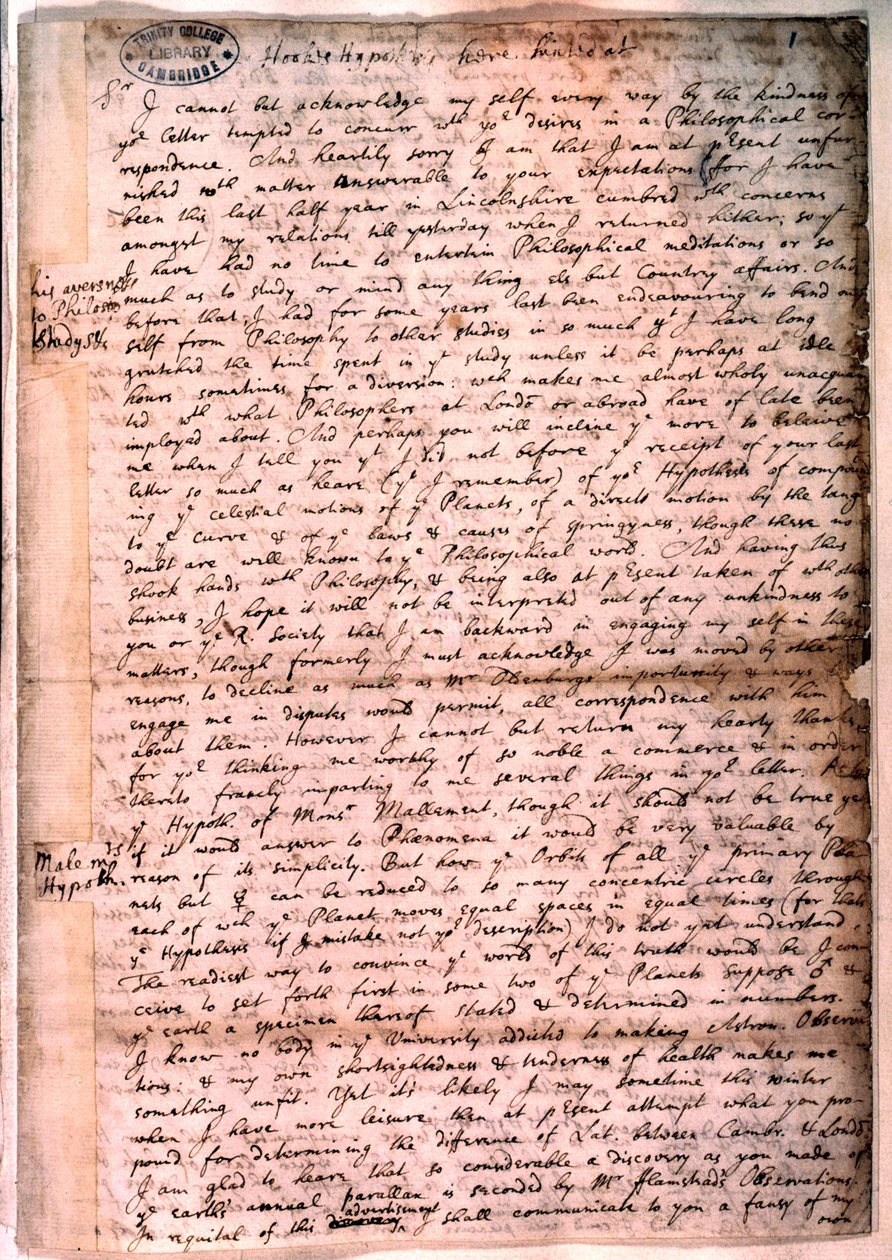 TRINITY COLLEGE
LIBRARY
CAMBRIDGE
1
Hooke's Hypothesis here hinted at
Sr
I cannot but acknowledge my self every way by the kindness of
yor letter tempted to concurr wth yor desires in a Philosophical cor-
respondence. And heartily sorry I am that I am at pEsent unfur-
nished wth matter answerable to your expectations (for I have
been this last half year in Lincolnshire cumbred wth concerns
amongst my relations till yesterday when I returned hither; so yt
I have had no time to entertein Philosophical meditations or so
much as to study or mind any thing els but Countrey affairs. And
before that, I had for some years last been endeavouring to bend my
self from Philosophy to other studies in so much yt I have long
grutched the time spent in yt study unless it be perhaps at idle
hours sometimes for a diversion: wch makes me almost wholy unacquain
ted wth what Philosophers at Londō or abroad have of late been
imployed about. And perhaps you will incline ye more to beleive
me when I tell you yt I did not before ye receipt of your last
letter so much as heare (yt I remember) of yor Hypothesis of compound
ing ye celestial motions of ye Planets, of a direct motion by the tang
to ye curve & of ye laws & causes of springyness, though these no
doubt are well known to ye Philosophical world. And having thus
shook hands wth Philosophy, & being also at pEsent taken of wth other
business, I hope it will not be interpreted out of any unkindness to
you or ye R. Society that I am backward in engaging my self in these
matters, though formerly I must acknowledge I was moved by other
reasons, to decline as much as Mr Oldenburgs importunity & ways to
engage me in disputes would permit, all correspondence with him
about them. However I cannot but return my hearty thanks
for yor thinking me worthy of so noble a commerce & in order
thereto francly imparting to me several things in yor letter. As to
ye Hypoth. of Monsr Mallement, though it should not be true yet
if it would answer to Phænomena it would be very valuable by
reason of its simplicity. But how ye Orbits of all ye primary Pla
nets but ☿ can be reduced to so many concentric circles through
each of wch ye Planet moves equal spaces in equal times (for thats
ye Hypothesis if I mistake not yor description) I do not yet understand.
The readiest way to convince ye world of this truth would be I con
ceive to set forth first in some two of ye Planets suppose ♂ &
ye earth a specimen thereof stated & determined in numbers.
I know no body in ye University addicted to making Astron. Observa
tions: & my own shortsightedness & tenderness of health makes me
something unfit. Yet it's likely I may sometime this winter
when I have more leisure then at pEsent attempt what you pro-
pound for determining the difference of Lat. between Cambr. & Londō
I am glad to heare that so considerable a discovery as you made of
ye earth's annual parallax is seconded by Mr fflamstead's Observations.
In requital of this advertisement I shall communicate to you a fansy of my
own
his aversness
to Philosop
Study &c
Malemts
Hypoth.